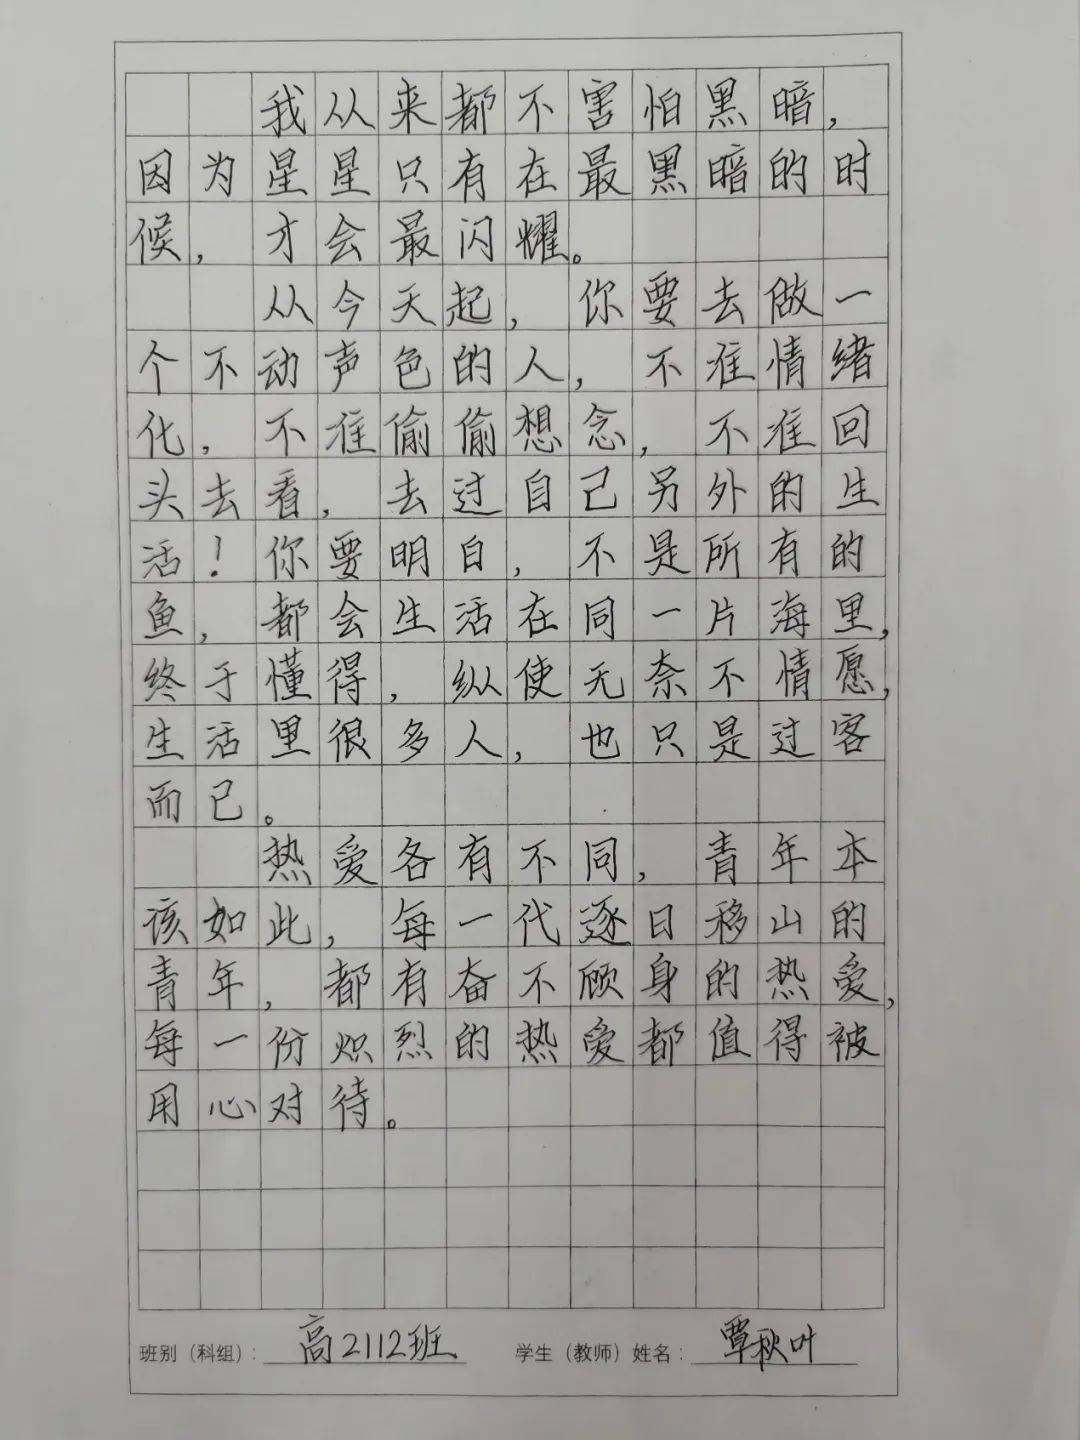 我从来都不害怕黑暗，
因为星星只有在最黑暗的时
候，才会最闪耀。
从今天起，你要去做一
个不动声色的人，不准情绪
化，不准偷偷想念，不准回
头去看，去过自己另外的生
活！你要明白，不是所有的
鱼，都会生活在同一片海里，
终于懂得，纵使无奈不情愿，
生活里很多人，也只是过客
而已。
热爱各有不同，青年本
该如此，每一代逐日移山的
青年，都有奋不顾身的热爱，
每一份炽烈的热爱都值得被
用心对待。
班别（科组）：高2112班 学生（教师）姓名：覃秋叶